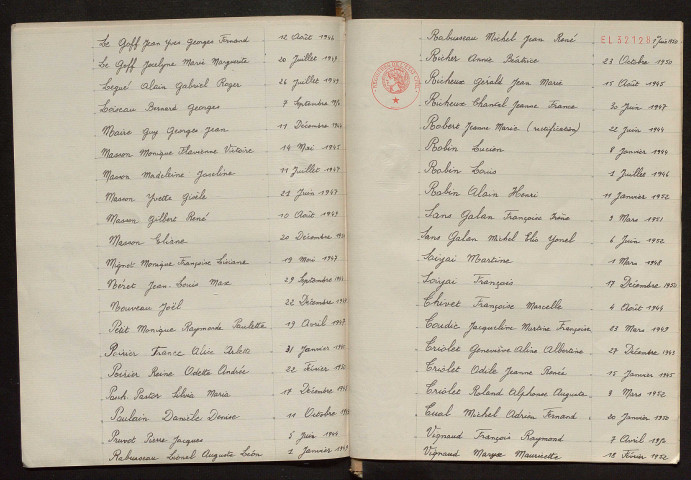 Le Goff Jean Yves Georges Fernand 12 Août 1946
Le Goff Jocelyne Marie Marguerite 20 Juillet 1949
Legué Alain Gabriel Roger 26 Juillet 1949
Loiseau Bernard Georges 7 Septembre
Maire Guy Georges Jean 11 Décembre
Masson Monique Flavienne Victoire 14 Mai 1945
Masson Madeleine Joseline 11 Juillet 1947
Masson Yvette Gisèle 21 Juin 1947
Masson Gilbert René 10 Août 1949
Masson Eliane 20 Décembre
Mignot Monique Françoise Liviane 19 Mai 1947
Néret Jean Louis Max 29 Septembre
Nouveau Joël 22 Décembre
Petit Monique Raymonde Paulette 19 Avril 1947
Poirier France Alice Arlette 31 Janvier
Poirier Reine Odette Andrée 22 Février 1950
Pastor Silvia Maria 17 Décembre
Paulain Danièle Denise 11 Octobre
Pruvot Pierre Jacques 5 Juin
Rabusseau Lionel Auguste Léon 1 Janvier 1949
Rabusseau Michel Jean René Juin 1950
EL 32128
Richer Annie Béatrice 23 Octobre 1950
Richeux Gérald Jean Marie 15 Août 1945
Richeux Chantal Jeanne France 30 Juin 1947
Robert Jeanne Marie (rectification) 22 Juin 1944
Robin Lucien 8 Janvier 1944
Robin Louis 1 Juillet 1946
Robin Alain Henri 11 Janvier 1952
Sans Galan Françoise 9 Mars 1951
Sans Galan Michel Elie Yonel 6 Juin 1952
Soizai Martine 1 Mars 1948
Soizai François 17 Décembre 1950
Thivet Françoise Marcelle 4 Août 1944
Toudic Jacqueline Martine Françoise 23 Mars 1949
Triolet Geneviève Aline Albertine 27 Décembre 1943
Triolet Odile Jeanne Renée 15 Janvier 1945
Triolet Roland Alphonse Auguste 8 Mars 1952
Tual Michel Adrien Fernand 20 Janvier 1950
Vignaud François Raymond 7 Avril
Vignaud Maryse Mauricette 18 Février 1952